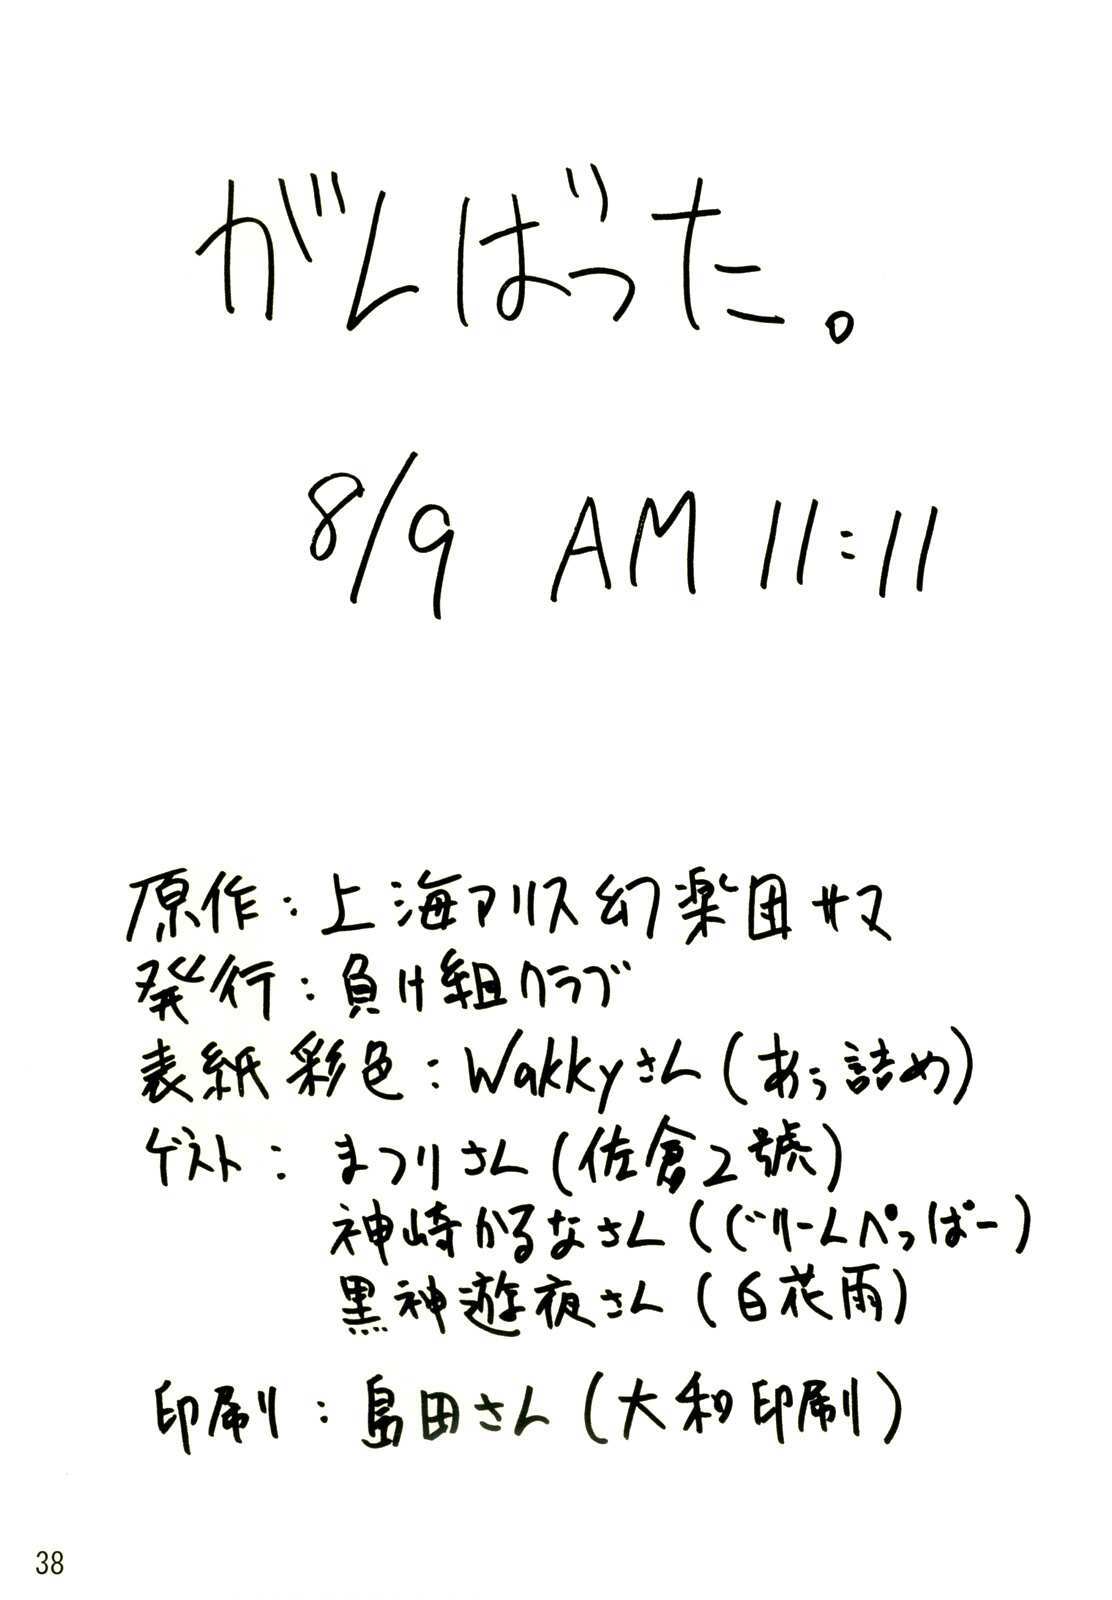 がんばった。
8/9 AM 11:11
原作：上海アリス幻楽団サマ
発行：負け組クラブ
表紙彩色：Wakkyさん（あぅ詰め）
ゲスト：まつりさん（佐倉2號）
神崎かるなさん（ぐりーんぺっぱー）
黒神遊夜さん（白花雨）
印刷り：島田さん（大和印刷）
38